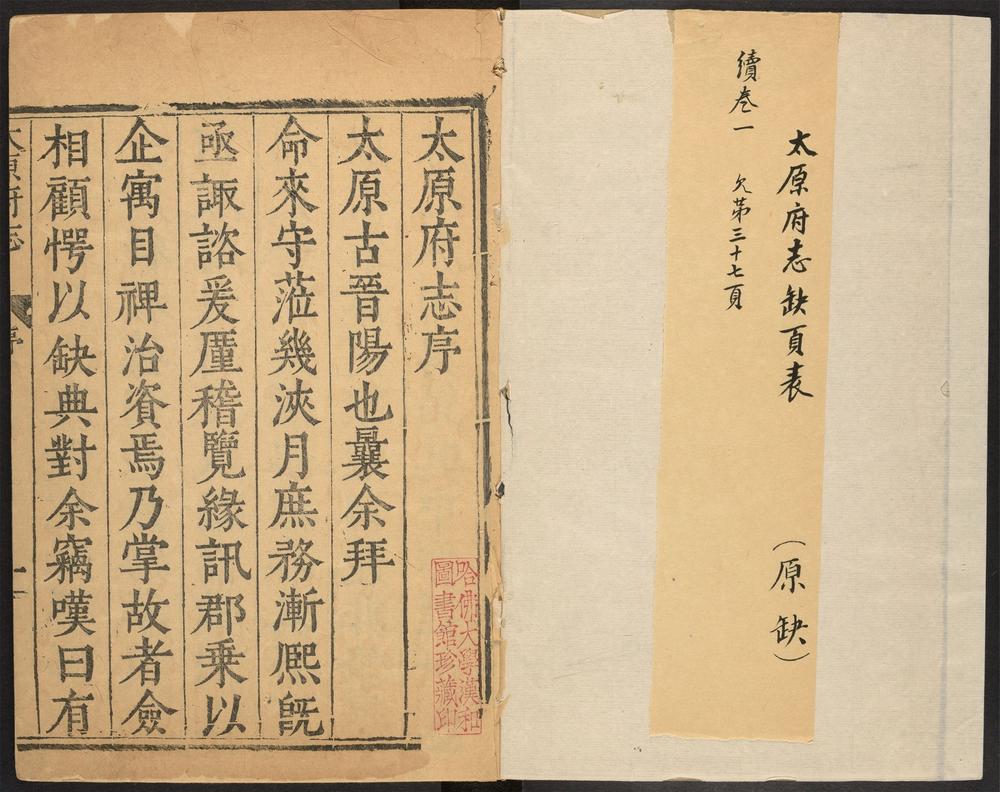 太原府志缺頁表（原缺）
續卷一 欠第三十七頁
太原府志序
太原古晉陽也曩余拜
命來守蒞幾浹月庶務漸熈旣
亟諏諮爰厪稽覽緣訊郡乗以
企寓目裨治資焉乃掌故者僉
相顧愕以缺典對余竊嘆曰有
太原府志 序 一
哈佛大學漢和
圖書館珍藏印